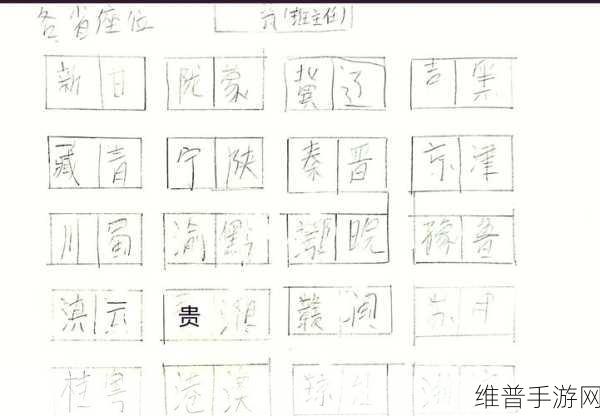 各省座位
京(班主任)
新 甘 陇 蒙 冀 辽 吉 黑
藏 青 宁 陕 秦 晋 京 津
川 蜀 渝 黔 鄂 皖 豫 鲁
滇 云 贵 湘 赣 闽
桂 粤 港 澳 琼
维普手游网
www.vpgame.net